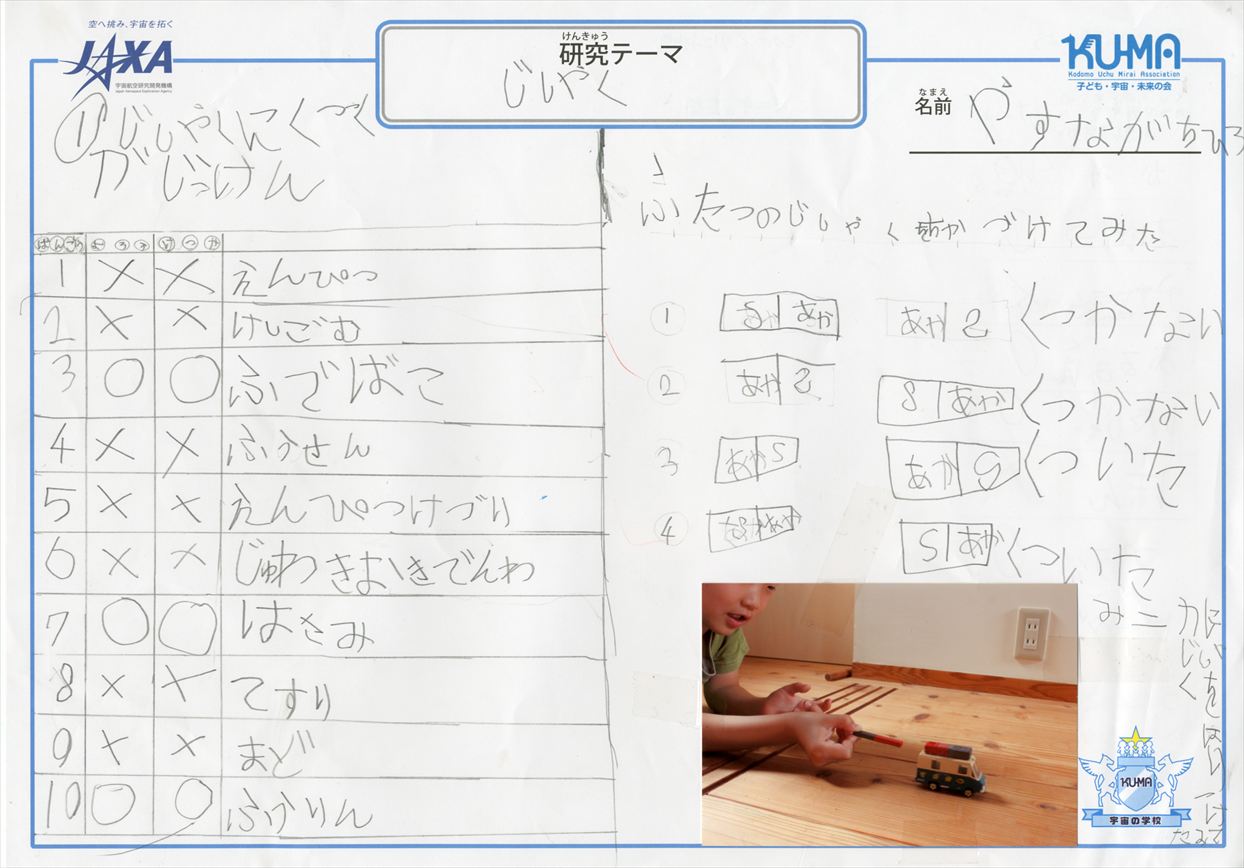 空へ挑み、宇宙を拓く
JAXA
宇宙航空研究開発機構
Japan Aerospace Exploration Agency
けんきゅう
研究テーマ
じしゃく
KU-MA
Kodomo Uchu Mirai Association
子ども・宇宙・未来の会
なまえ
名前
やすながちひろ
① じしゃくにくつく
が じっけん
ばんごう よそう けつか
1 × × えんぴつ
2 × × けしごむ
3 ○ ○ ふでばこ
4 × × ふうせん
5 × × えんぴつけづり
6 × ×
7 ○ ○ はさみ
8 × × てすり
9 × × まど
10 ○ ○ ふうりん
ふたつのじしゃく
づけてみた
① あか あか くつかない
② あか S あか くつかない
3 あか S あか くついた
④ S あか くついた
KU-MA
宇宙の学校